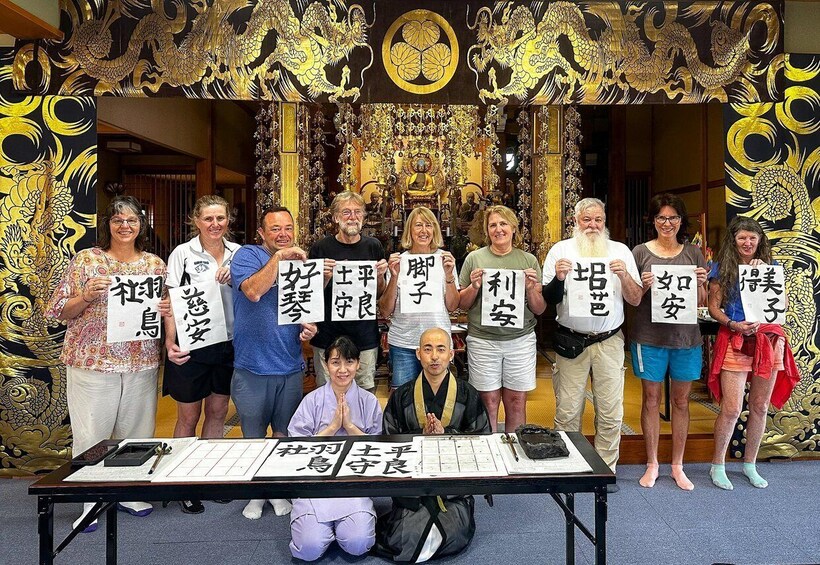 羽鳥
社
慈安
好琴
平良
土守
脚子
利安
芭
如安
美子
得
羽鳥
社
平良
土守